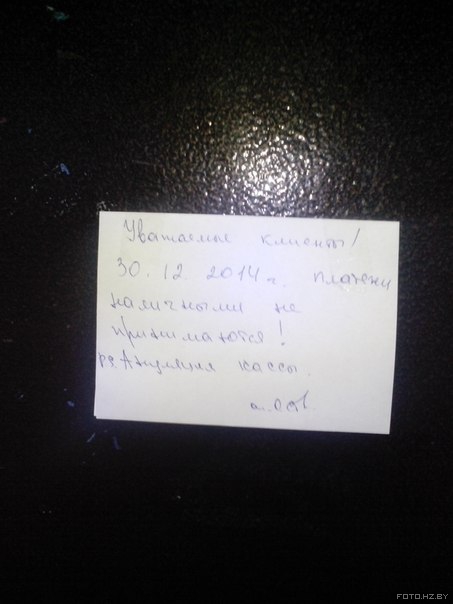 Уважаемые клиенты!
30.12.2014 г. платежи
наличными не
принимаются!
кассы.
FOTO.HZ.BY